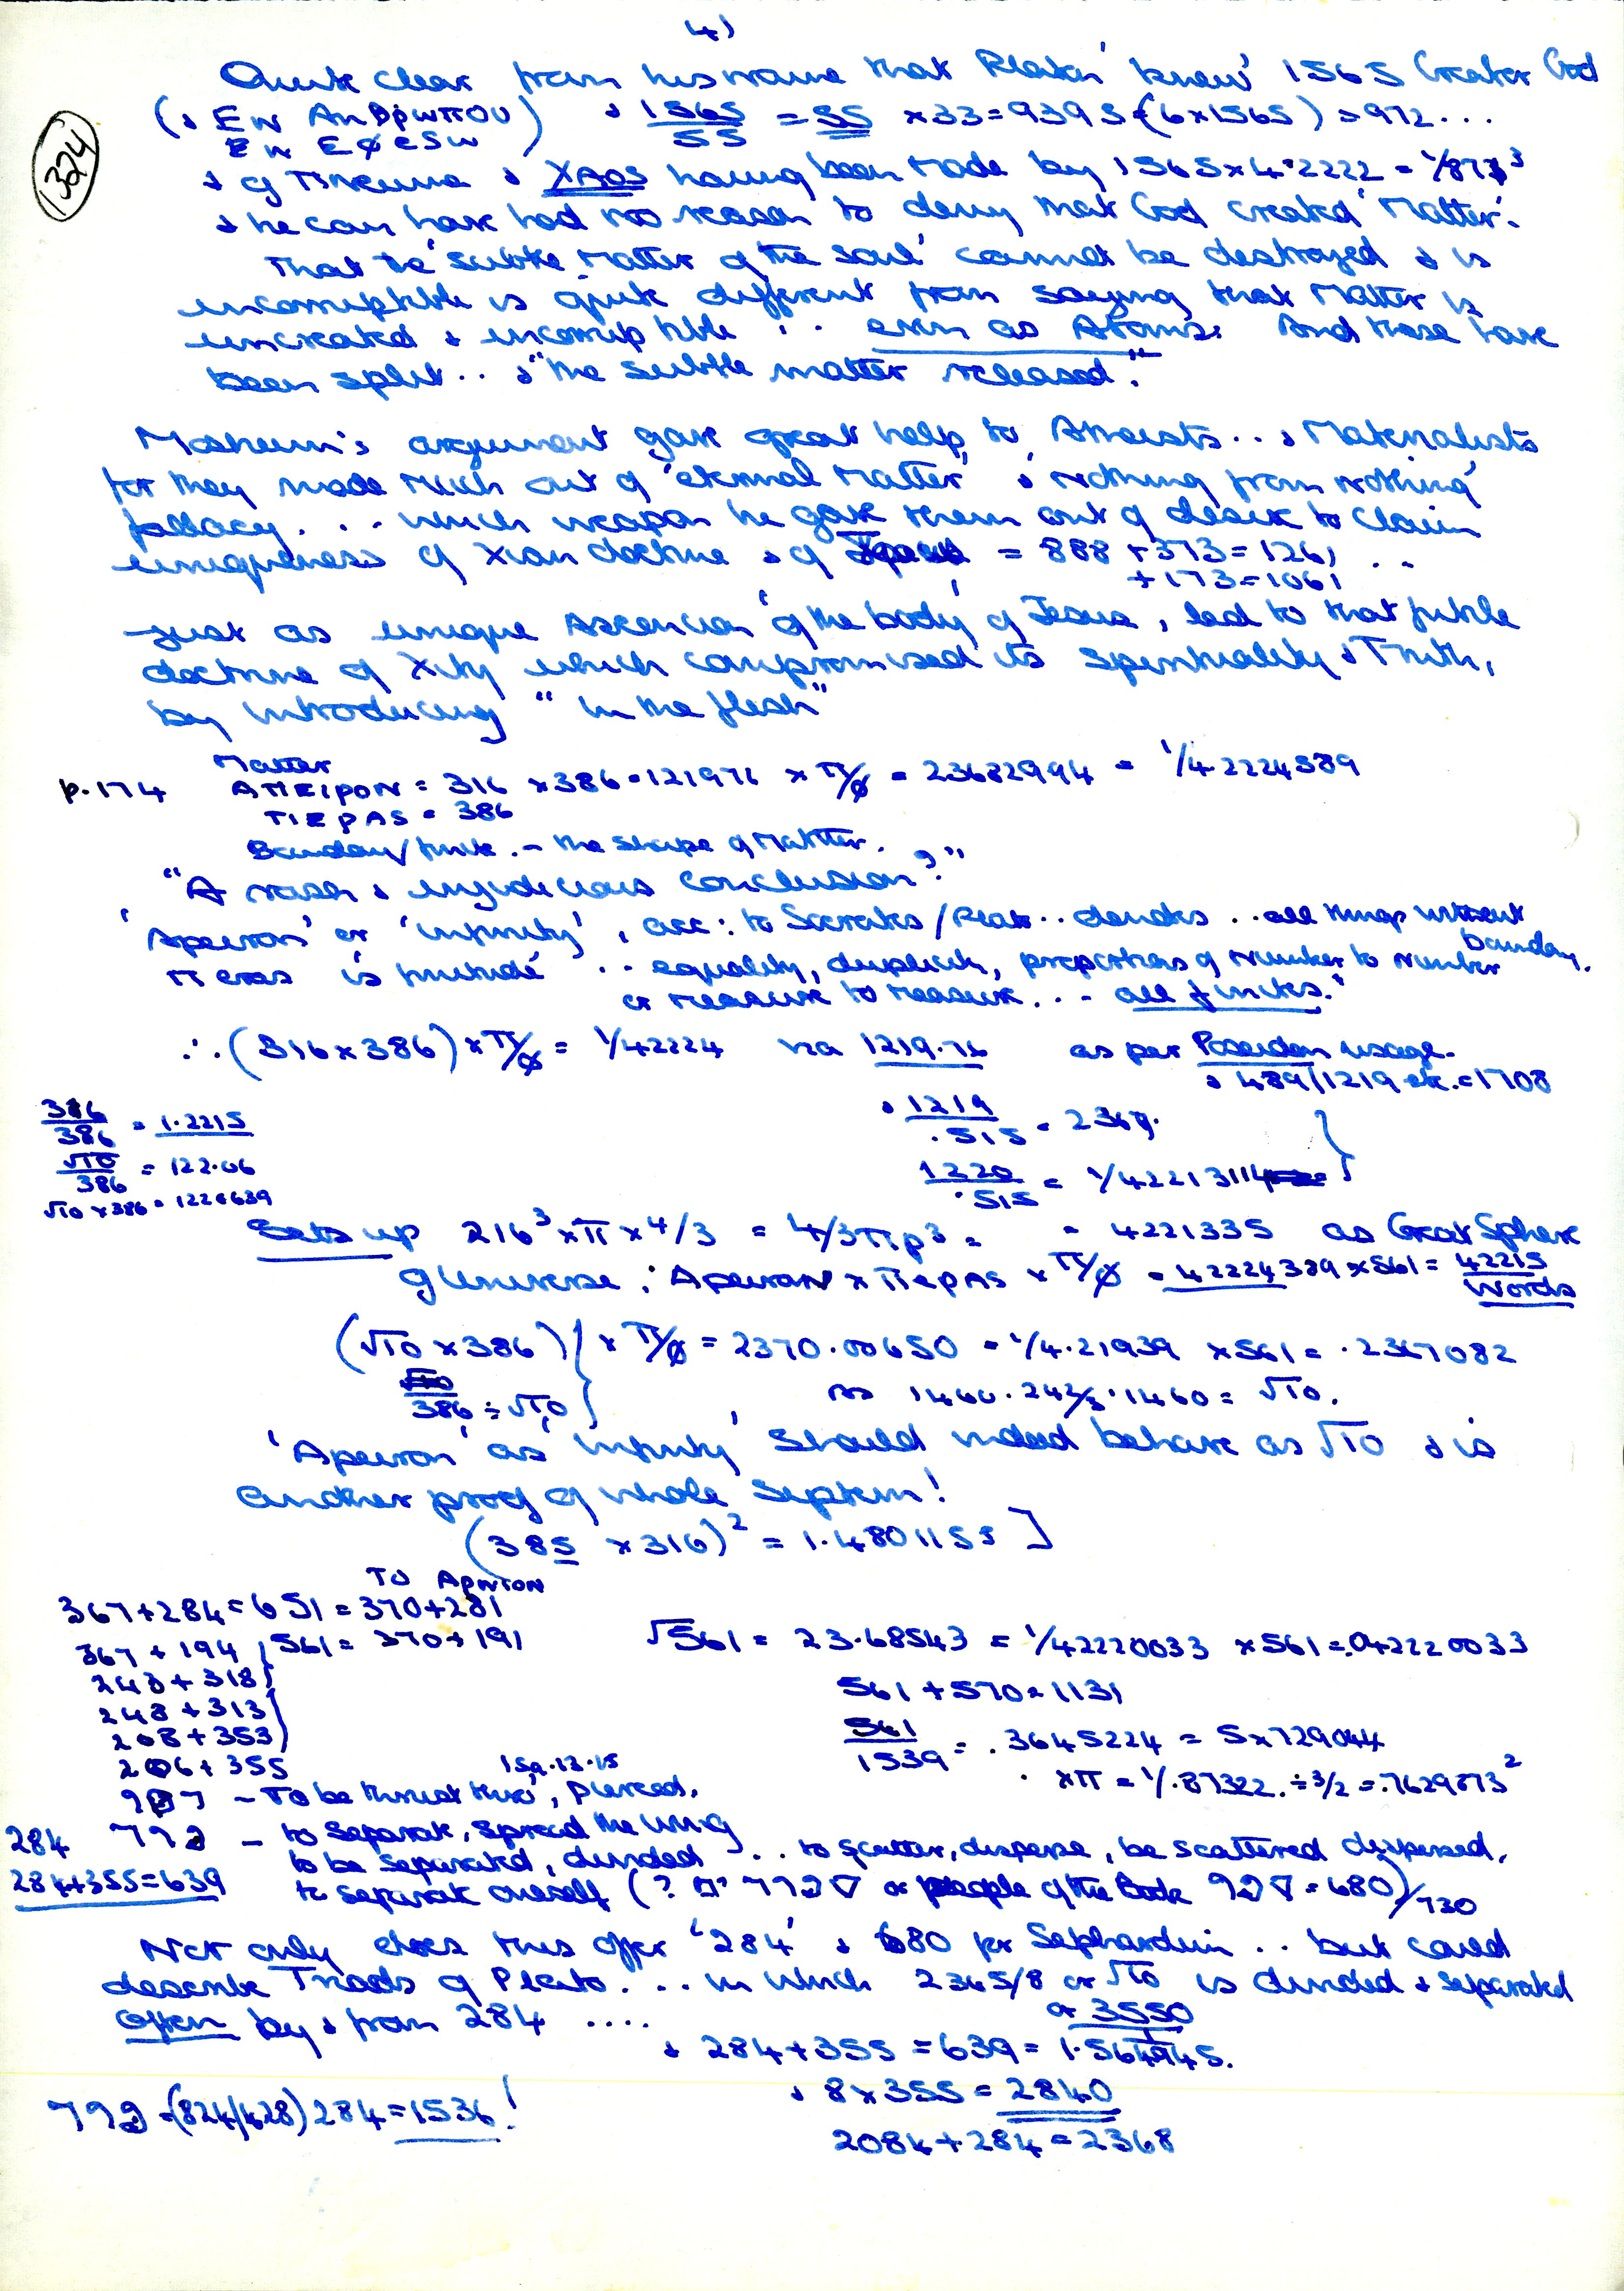 4)
1324
Quite clear from his name that Platon 'knew' 1565 Creator God
(& EN ANθρωπου) & 1565/55 = 55 x 33 = 9395 (6x1565) = 972...
EN EφeSω
& of Timeuma & XAOS having been made by 1565 x 4.2222 = 1/873³
& he can have had no reason to deny that God created 'Matter'.
That the 'subtle matter of the soul' cannot be destroyed & is
incorruptible is quite different from saying that Matter is
uncreated & incorruptible ... even as Atoms. And these have
been split.. & "the subtle matter released."
Mosheim's argument gave great help to Atheists... & Materialists
for they made much out of 'eternal matter' & 'nothing from nothing'
fallacy... which weapon he gave them out of desire to claim
uniqueness of Xian doctrine & of = 888 + 373 = 1261 ..
+173 = 1061
- just as unique Ascension 'of the body' of Jesus, led to that futile
doctrine of Xity which compromised its spirituality & Truth,
by introducing "in the flesh"
Matter
p.174 ΑΠΕΙΡΟΝ = 316 x 386 = 121976 x π/φ = 23682994 = 1/4.2224389
ΠΕΡΑS = 386
Boundary/finite. - the shape of Matter.
"A rash & injudicious conclusion?"
'Apeiron' or 'infinity', acc: to Socrates/Plato.. denotes .. all things without boundary.
Πeras is finitude .. equality, duplicity, proportions of number to number
or measure to measure... - all finites."
∴ (316x386) x π/φ = 1/42224 via 1219.76 as per Poseidon usage.
& 489/1219 etc. = 1708
316/386 = 1.2215
& 1219/.515 = 2367.
√10/386 = 122.06
1220/.515 = 1/42213114
√10 x 386 = 1220639
Sets up 216³ x π x 4/3 = 4/3πρ³ = = 4221335 as Great Sphere
of Universe: Apeiron x Πepas x π/φ = 42224389 x 561 = 42215
Words
(√10 x 386) } x π/φ = 2370.00650 = 1/4.21939 x 561 = .2367082
386 ÷ √10 } as 1460.242/3.1460 = √10.
'Apeiron' as 'infinity' should indeed behave as √10 & is
another proof of whole system!
(385 x 316)² = 1.4801155]
TO APNION
367+284 = 651 = 370+281
367 + 194 } 561 = 370+191
√561 = 23.68543 = 1/42220033 x 561 = .042220033
243 + 318 }
248 + 313 }
561 + 570 = 1131
208 + 353 }
561/1539 = .3645224 = 5x729044
206 + 355
. x π = 1/.87322. ÷ 3/2 = .7629873²
Isa.13.15
- To be thrust thro', pierced,
284 - to separate, spread the wing
to be separated, divided .. to scatter, disperse, be scattered dispersed,
284+355=639 to separate oneself (? or people of the Book = 680)/730
Not only does this offer '284' & 680 for Sephardim .. but could
describe Triads of Plato... in which 2365/8 or √10 is divided & separated
often by & from 284 .... or 3550
& 284+355 = 639 = 1.564945.
& 8 x 355 = 2840
= (824/428) 284 = 1536!
2084 + 284 = 2368